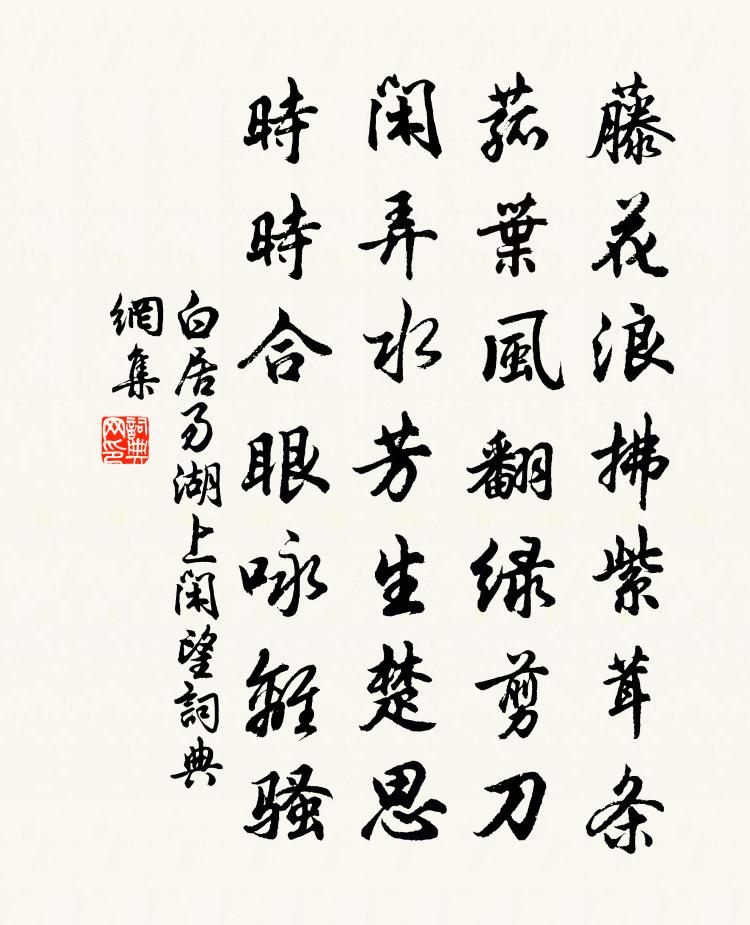 藤花浪拂紫茸条
菰葉風翻绿剪刀
闲弄水芳生楚思
時時合眼咏離骚
白居易湖上闲望詞典
網集
詞典
网印